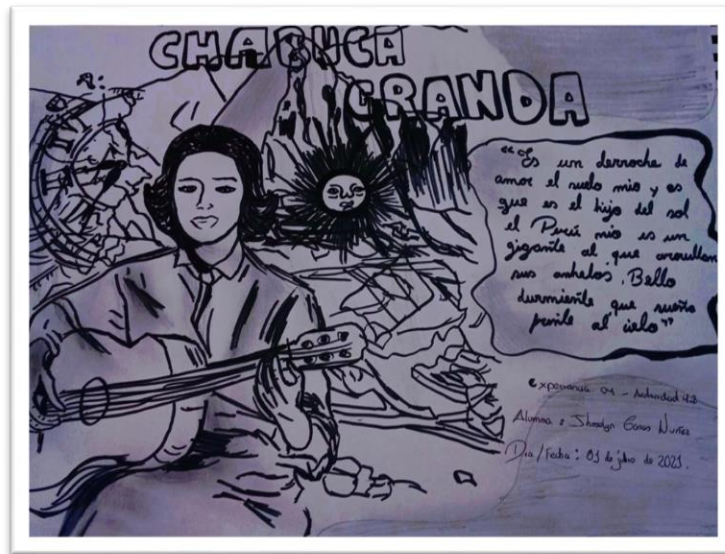 CHABUCA
GRANDA
"Es un derroche de
amor el suelo mio y es
que es el hijo del sol
el Perú mio es un
gigante al que arrullan
sus anhelos. Bello
durmiente que sueña
frente al cielo"
Experiencia 04 - Actividad
Alumna :
Dia / Fecha : 01 de julio de 2021.